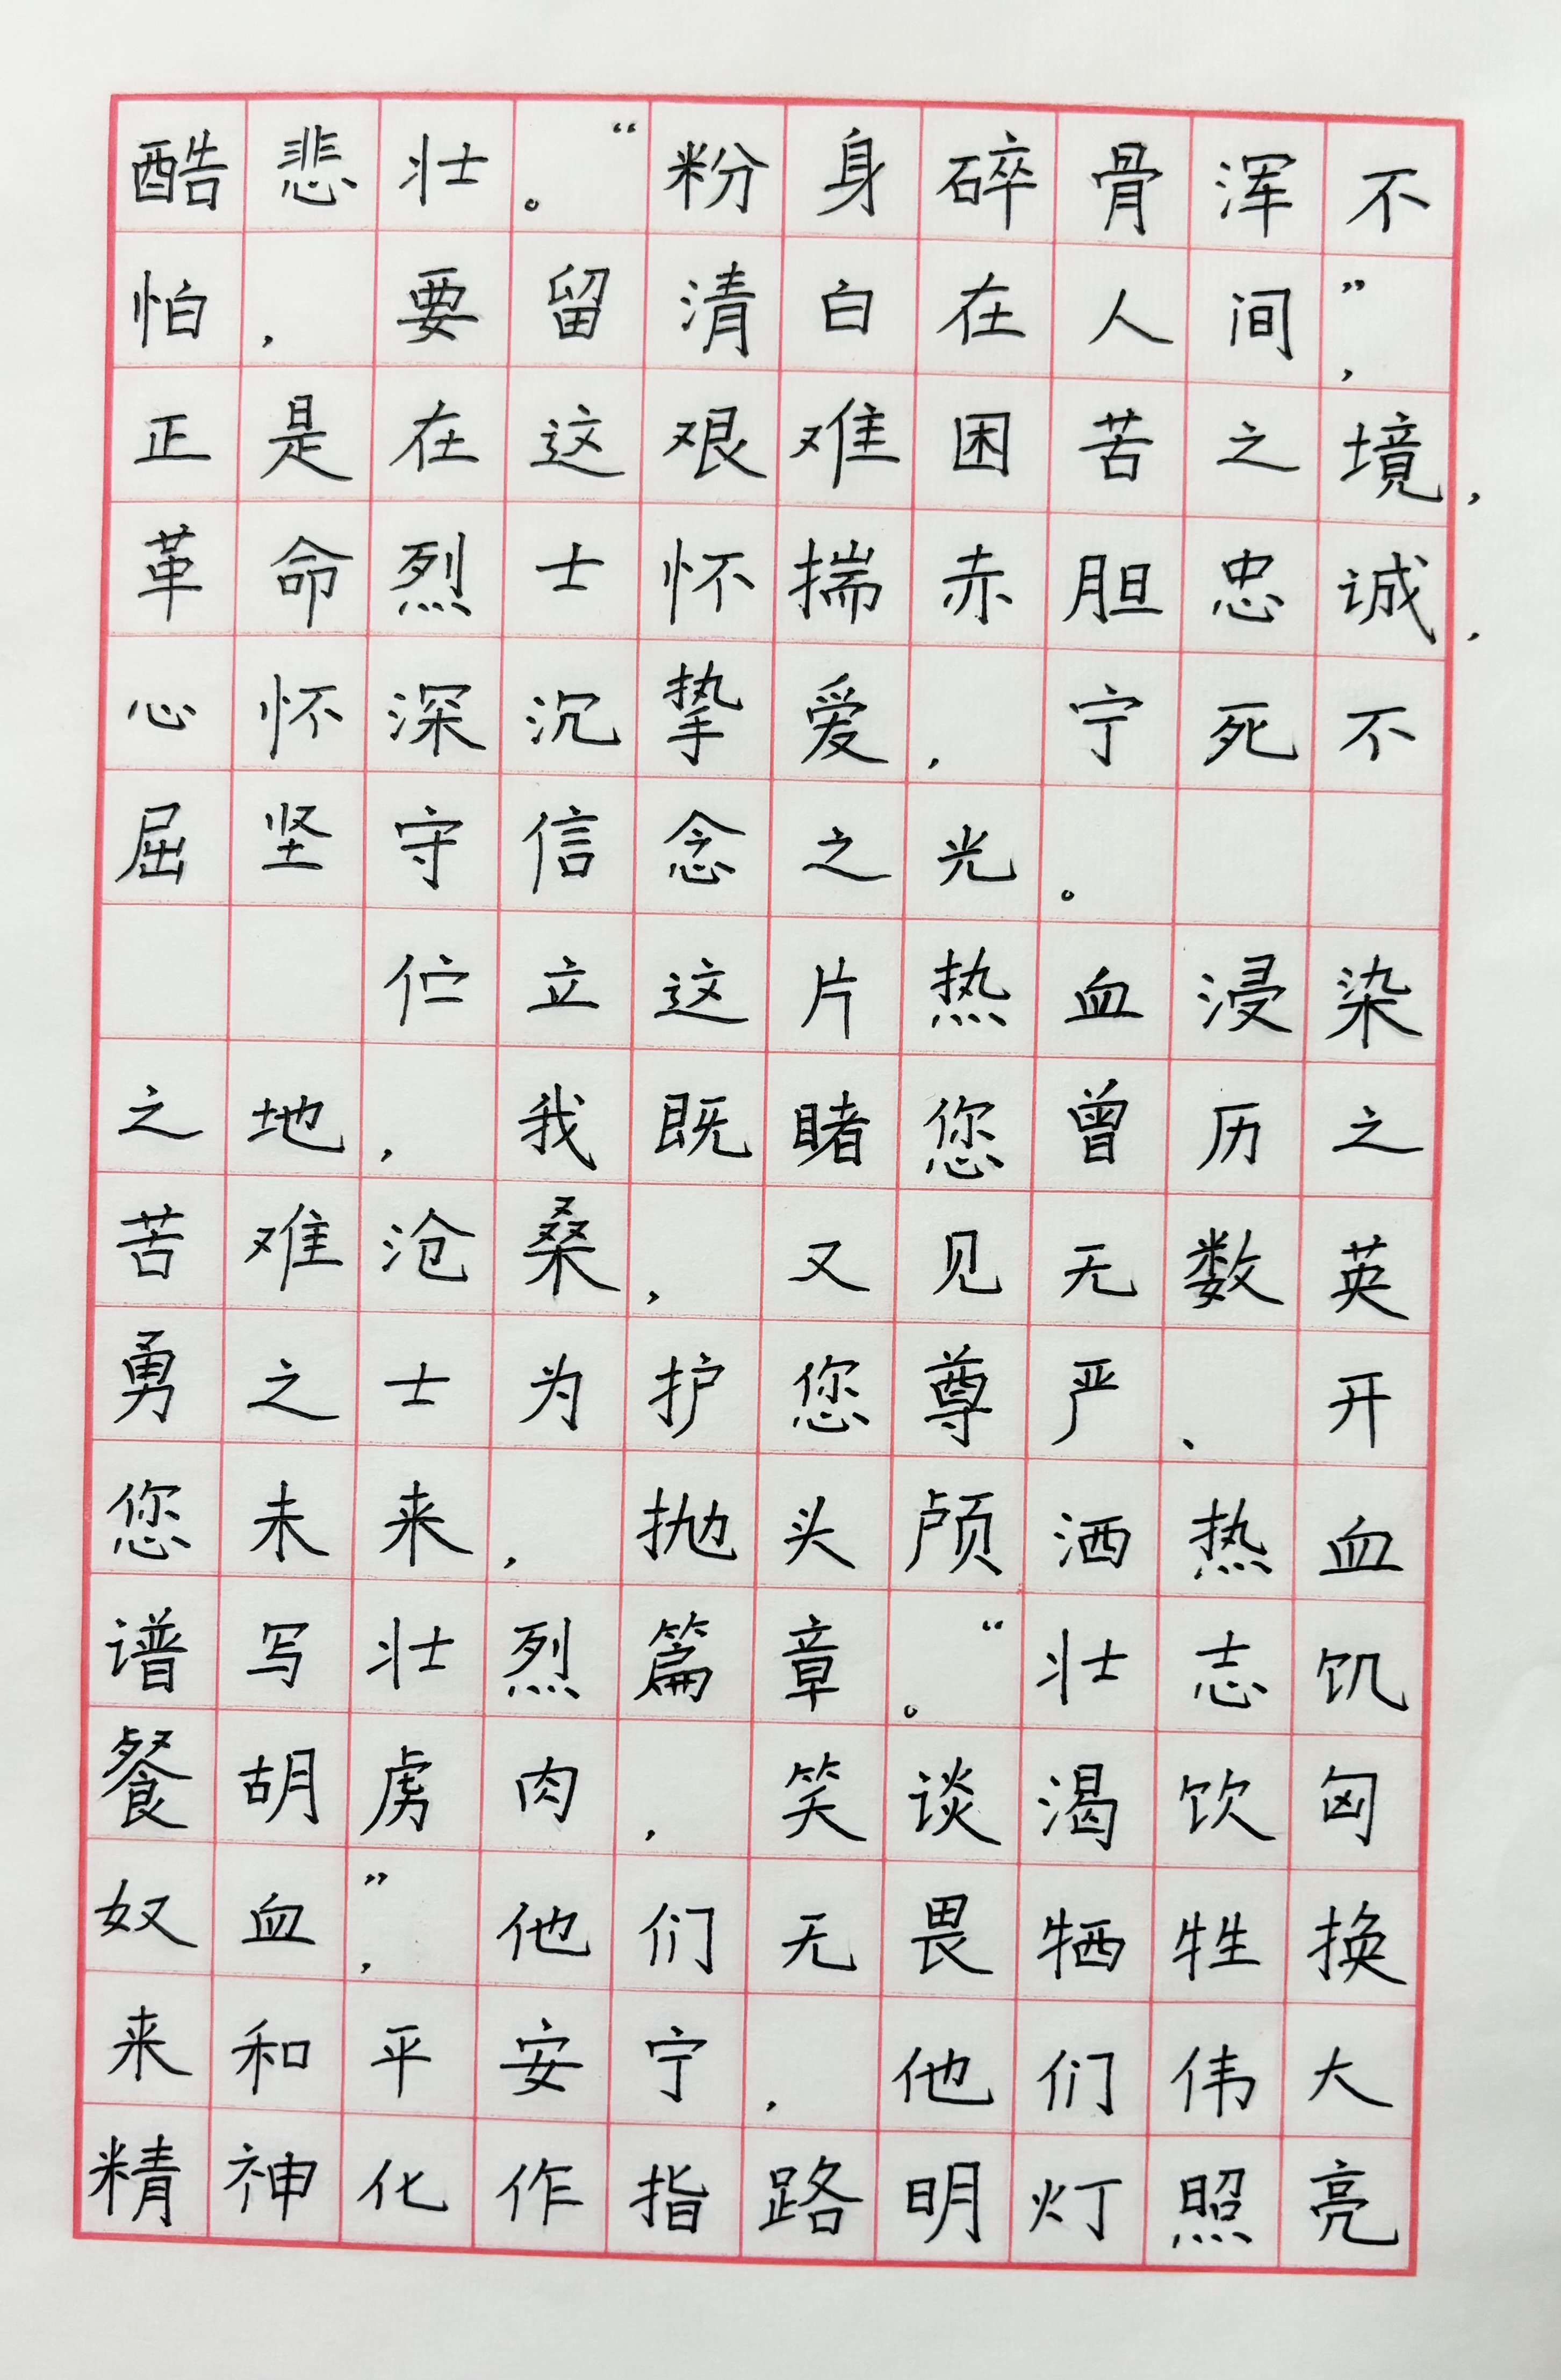 酷悲壮。“粉身碎骨浑不
怕,要留清白在人间”,
正是在这艰难困苦之境,
革命烈士怀揣赤胆忠诚,
心怀深沉挚爱,宁死不
屈坚守信念之光。
伫立这片热血浸染
之地,我既睹您曾历之
苦难沧桑,又见无数英
勇之士为护您尊严、开
您未来,抛头颅洒热血
谱写壮烈篇章。“壮志饥
餐胡虏肉,笑谈渴饮匈
奴血”,他们无畏牺牲换
来和平安宁,他们伟大
精神化作指路明灯照亮